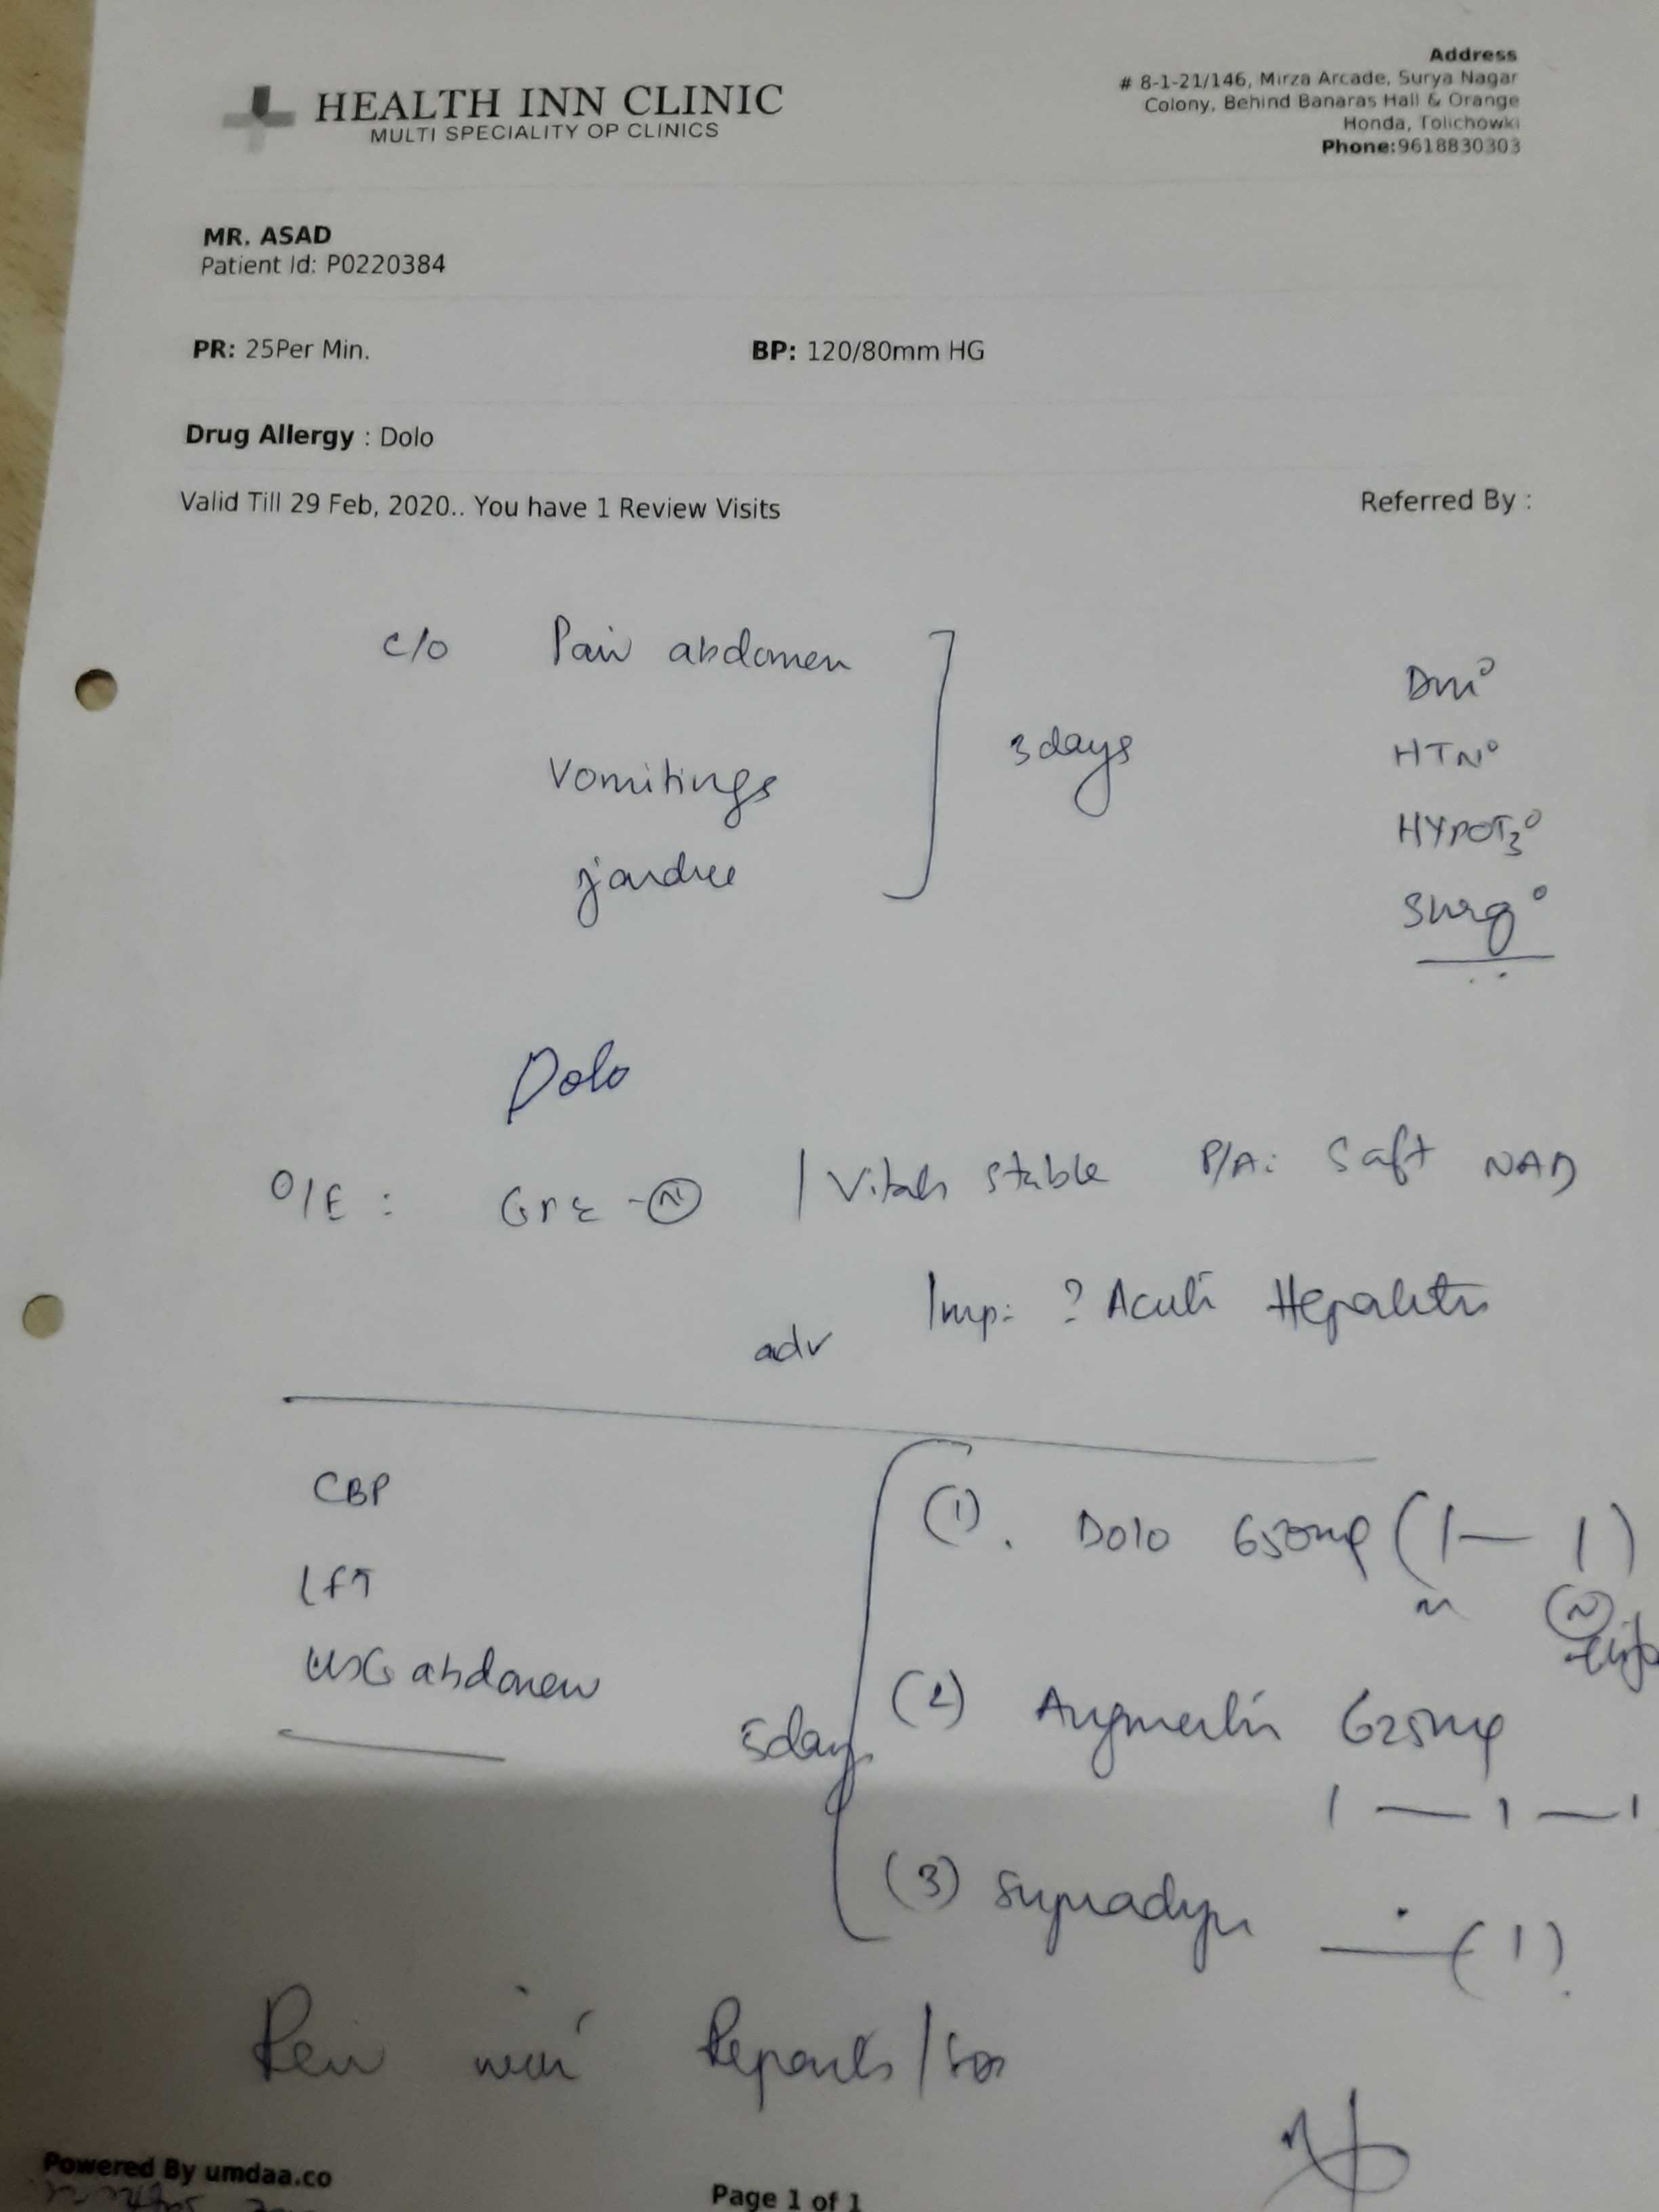 HEALTH INN CLINIC
MULTI SPECIALITY OP CLINICS
Address
# 8-1-21/146, Mirza Arcade, Surya Nagar
Colony, Behind Banaras Hall & Orange
Honda, Tolichowki
Phone:9618830303
MR. ASAD
Patient Id: P0220384
PR: 25Per Min. BP: 120/80mm HG
Drug Allergy : Dolo
Valid Till 29 Feb, 2020.. You have 1 Review Visits Referred By :
c/o Pain abdomen
Vomitings
3 days
DM°
HTN°
HYPOT3°
Surg°
Dolo
O/E : | Vitals stable P/A: Soft NAD
Imp: ? Acute Hepatitis
adv
CBP
LFT
USG abdomen
5 days
(1). Dolo 650mg (1— 1)
(2) Augmentin 625mg
1 — 1 — 1
(3) Supradyn — (1).
Reports/sos
Powered By umdaa.co
Page 1 of 1